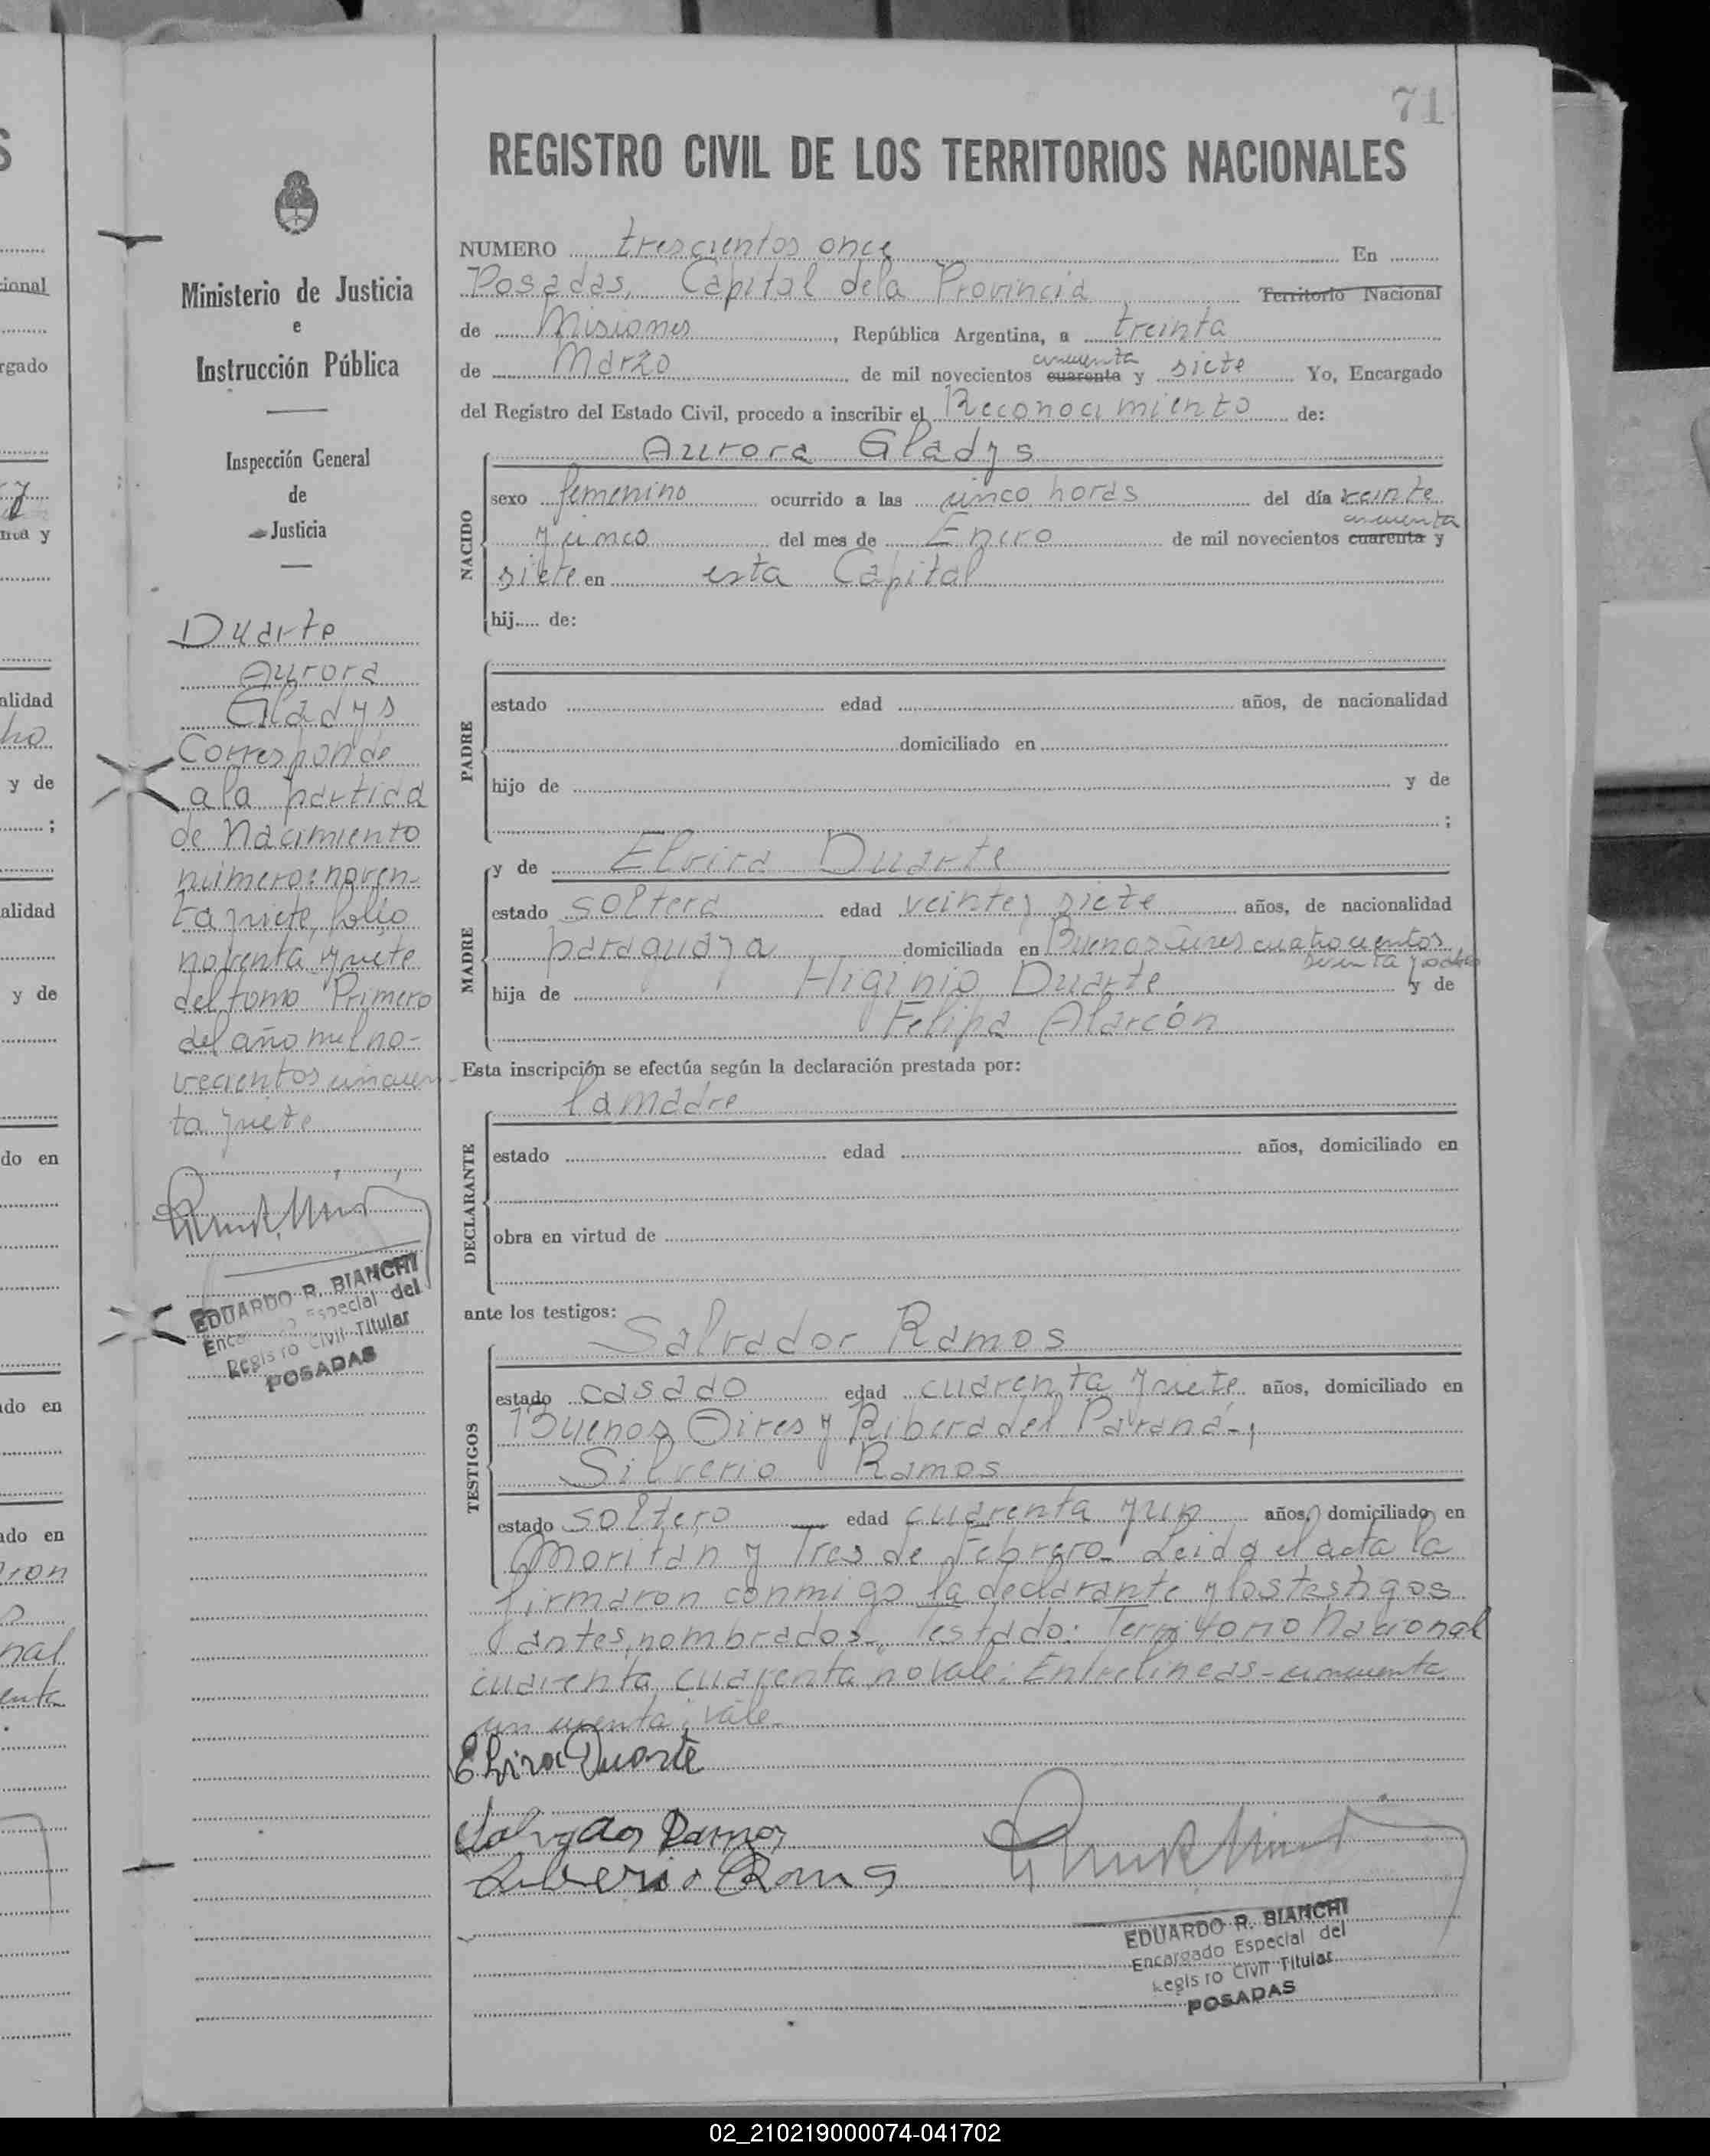 71
REGISTRO CIVIL DE LOS TERRITORIOS NACIONALES
NUMERO trescientos once En
Posadas, Capital dela Provincia Territorio Nacional
de Misiones, República Argentina, a treinta
de Marzo de mil novecientos cuarenta cincuenta y siete Yo, Encargado
del Registro del Estado Civil, procedo a inscribir el Reconocimiento de:
NACIDO
Aurora Gladys
sexo femenino ocurrido a las cinco horas del día veinte
y cinco del mes de Enero de mil novecientos cuarenta cincuenta y
siete en esta Capital
hij..... de:
PADRE
estado edad años, de nacionalidad
domiciliado en
hijo de y de
;
MADRE
y de Elvira Duarte
estado soltera edad veinte y siete años, de nacionalidad
paraguaya domiciliada en Buenos Aires cuatrocientos
hija de Higinio Duarte, y de
Felipa Alarcón
Esta inscripción se efectúa según la declaración prestada por:
DECLARANTE
la madre
estado edad años, domiciliado en
obra en virtud de
ante los testigos:
TESTIGOS
Salvador Ramos
estado casado edad cuarenta y siete años, domiciliado en
Buenos Aires y Ribera del Paraná-,
Silverio Ramos
estado soltero edad cuarenta y un años, domiciliado en
Moritán y Tres de Febrero- Leida el acta la
firmaron conmigo la declarante y los testigos
antes nombrados- Testado: Territorio Nacional
cuarenta cuarenta no vale: Entrelineas-cincuenta
cincuenta: vale-
Elvira Duarte
Salvador Ramos
Silverio Ramos
EDUARDO R. BIANCHI
Encargado Especial del
Regis ro Civil Titular
POSADAS
Ministerio de Justicia
e
Instrucción Pública
Inspección General
de
Justicia
Duarte
Aurora
Gladys
Corresponde
a la partida
de Nacimiento
número: noven-
ta y siete, folio
noventa y siete
del tomo Primero
del año mil no-
vecientos cincuen-
ta y siete
EDUARDO R. BIANCHI
Especial del
Regis ro Civil Titular
POSADAS
02_210219000074-041702